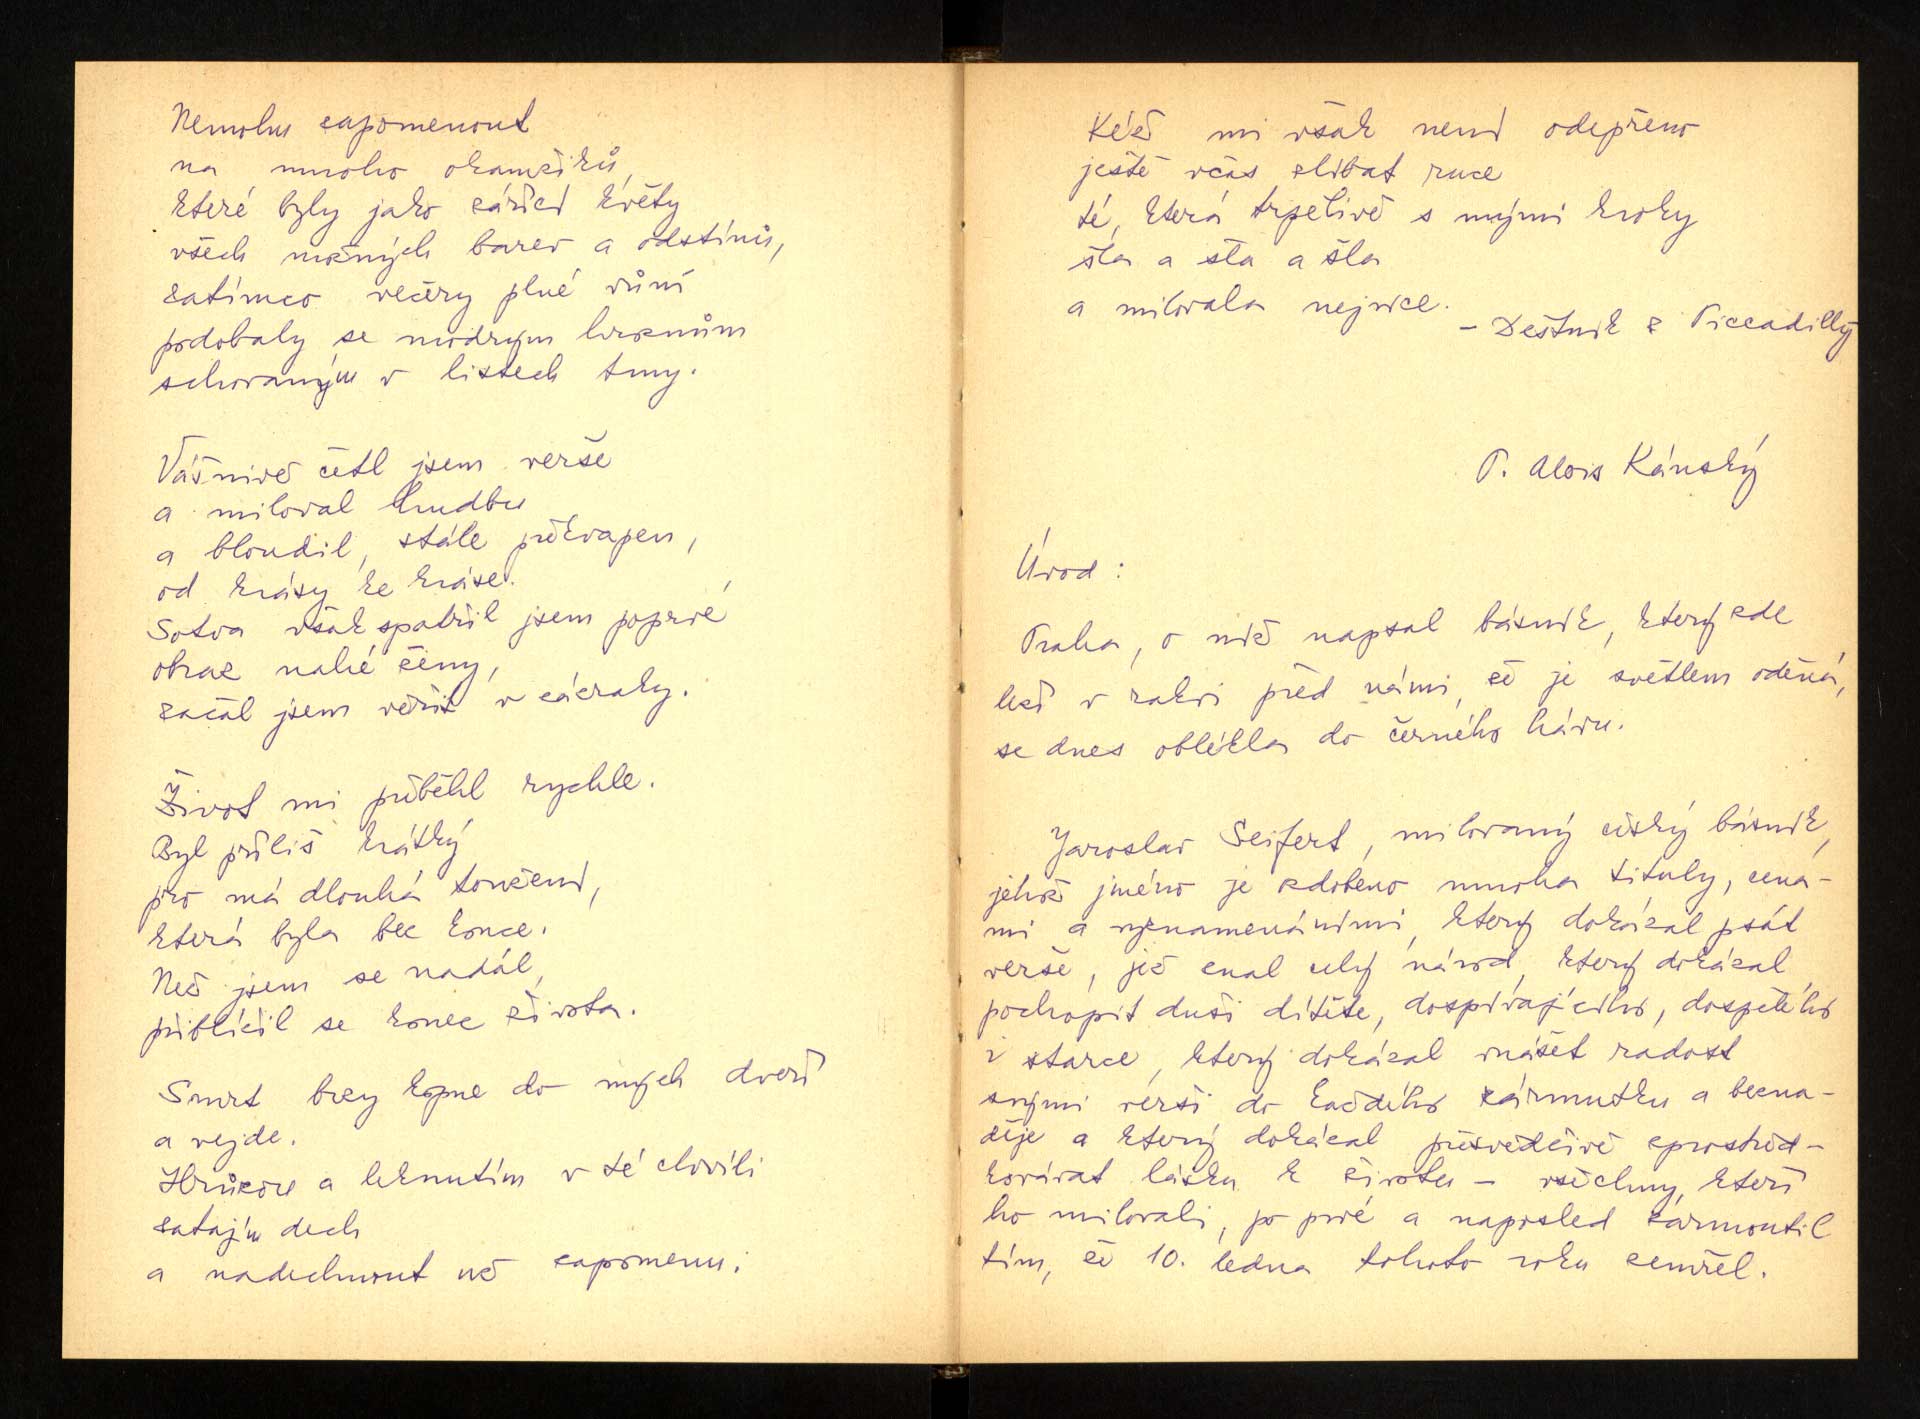 Nemohu zapomenout
na mnoho okamžiků,
které byly jako zářící květy
všech možných barev a odstínů,
zatímco večery plné vůní
podobaly se modrým hroznům
schovaným v listech tmy.
Vášnivě četl jsem verše
a miloval hudbu
a bloudil, stále překvapen,
od krásy ke kráse.
Sotva však spatřil jsem poprvé
obraz nahé ženy,
začal jsem věřit v zázraky.
Život mi přiběhl rychle.
Byl příliš krátký
pro má dlouhá toužení,
která byla bez konce.
Než jsem se nadál,
přiblížil se konec života.
Smrt brzy kopne do mých dveří
a vejde.
Hrůzou a leknutím v té chvíli
zatajím dech
a nadechnout už zapomenu.
Kéž mi však není odepřeno
ještě včas zlíbat ruce
té, která trpělivě s mými kroky
šla a šla a šla
a milovala nejvíce.
- Deštník z Piccadilly
P. Alois Kánský
Úvod:
Praha, o níž napsal básník, který zde
leží v rakvi před námi, že je světlem oděná,
se dnes oblékla do černého hávu.
Jaroslav Seifert, milovaný český básník,
jehož jméno je ozdobeno mnoha tituly, cená-
mi a vyznamenáními, který dokázal psát
verše, jež znal celý národ, který dokázal
pochopit duši dítěte, dospívajícího, dospělého
i starce, který dokázal vnášet radost
svými verši do každého zármutku a bezna-
děje a který dokázal přesvědčivě zprostřed-
kovávat lásku k životu - všechny, kteří
ho milovali, po prvé a naposled zarmoutil
tím, že 10. ledna tohoto roku zemřel.